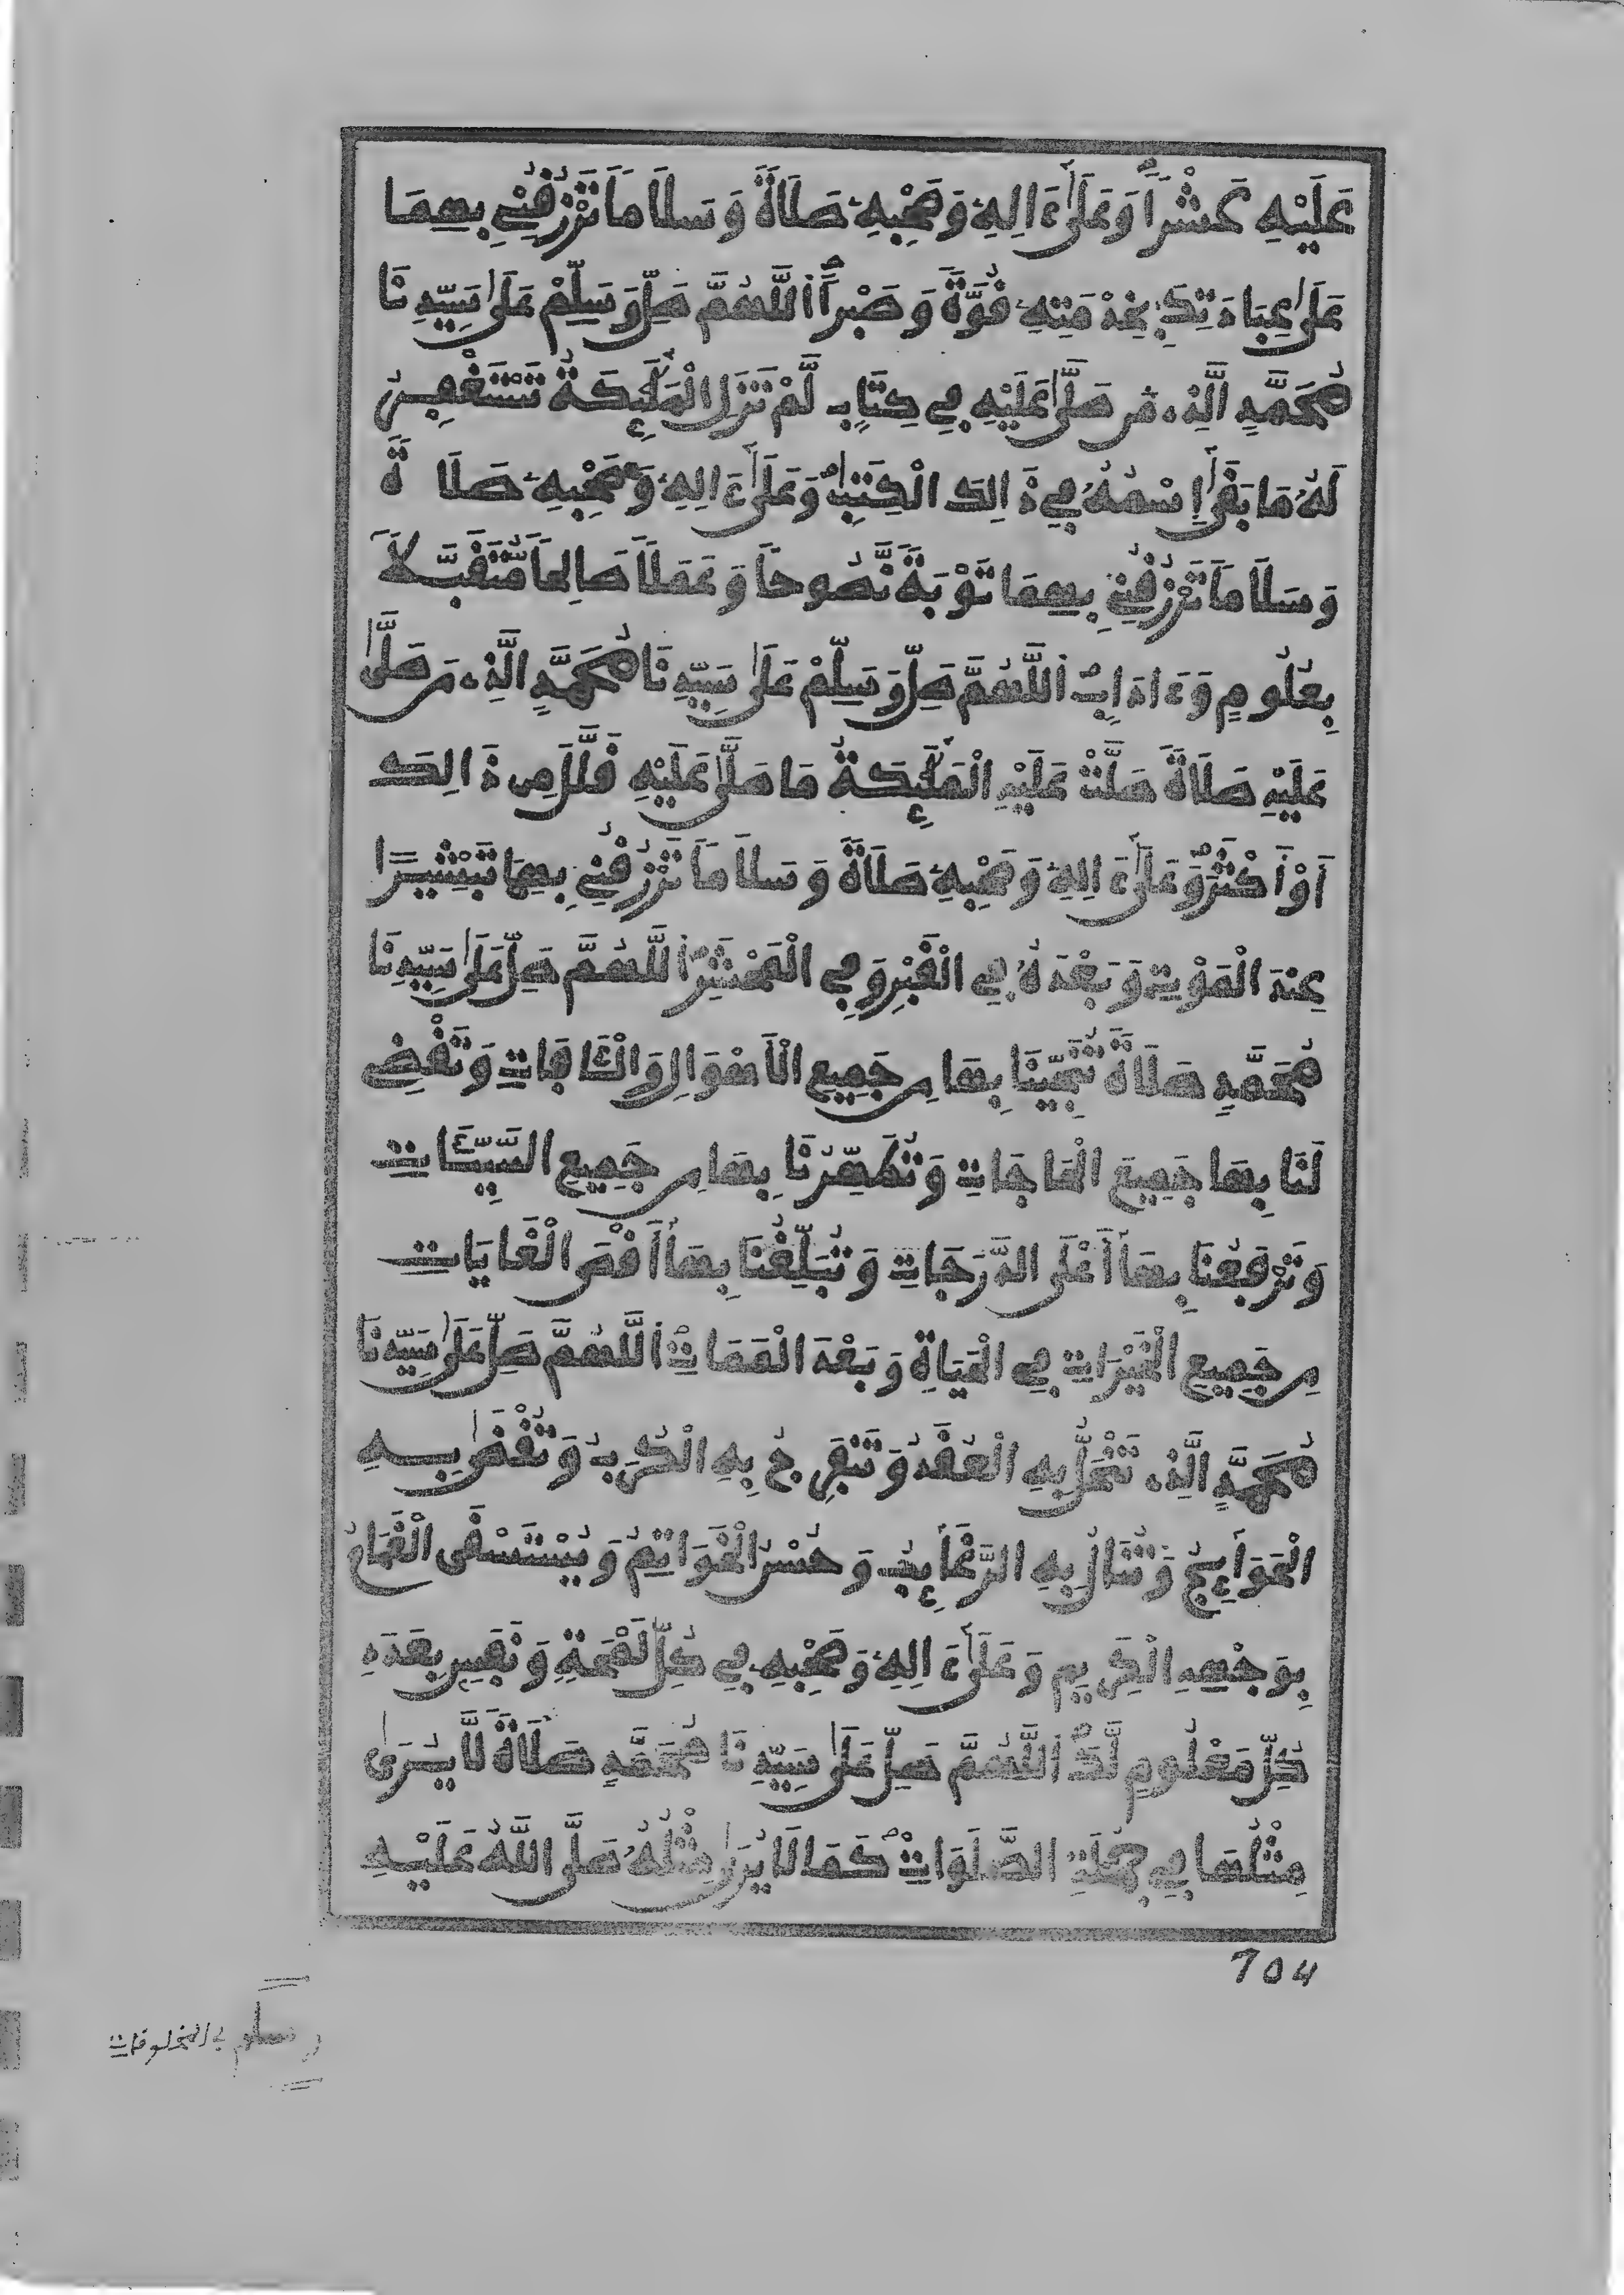 عَلَيْهِ عَشْراً وَعَلَىٰ ءَالِهِ وَصَحْبِهِ صَلَاةً وَسَلَاماً تَرْزُقُنِي بِهِمَا
عَلَىٰ عِبَادَتِكَ بِخِدْمَتِهِ قُوَّةً وَصَبْراً اَللَّهُمَّ صَلِّ وَسَلِّمْ عَلَىٰ سَيِّدِنَا
مُحَمَّدٍ الَّذِي مَن صَلَّىٰ عَلَيْهِ فِي كِتَابٍ لَّمْ تَزَلِ الْمَلَٰئِكَةُ تَسْتَغْفِرُ
لَهُ مَا بَقِيَ اِسْمُهُ فِي ذَالِكَ الْكِتَٰبِ وَعَلَىٰ ءَالِهِ وَصَحْبِهِ صَلَاةً
وَسَلَاماً تَرْزُقُنِي بِهِمَا تَوْبَةً نَّصُوحاً وَعَمَلاً صَالِحاً مُّتَقَبَّلاً
بِعُلُومٍ وَءَادَابٍ اَللَّهُمَّ صَلِّ وَسَلِّمْ عَلَىٰ سَيِّدِنَا مُحَمَّدٍ الَّذِي مَن صَلَّىٰ
عَلَيْهِ صَلَاةً صَلَّتْ عَلَيْهِ الْمَلَٰئِكَةُ مَا صَلَّىٰ عَلَيْهِ فَلْيُقِلَّ مِن ذَالِكَ
أَوْ أَكْثَرَ وَعَلَىٰ ءَالِهِ وَصَحْبِهِ صَلَاةً وَسَلَاماً تَرْزُقُنِي بِهِمَا تَبْشِيراً
عِندَ الْمَوْتِ وَبَعْدَهُ فِي الْقَبْرِ وَفِي الْمَحْشَرِ اَللَّهُمَّ صَلِّ عَلَىٰ سَيِّدِنَا
مُحَمَّدٍ صَلَاةً تُنَجِّينَا بِهَا مِن جَمِيعِ الْأَهْوَالِ وَالْآفَاتِ وَتَقْضِي
لَنَا بِهَا جَمِيعَ الْحَاجَاتِ وَتُطَهِّرُنَا بِهَا مِن جَمِيعِ السَّيِّئَاتِ
وَتَرْفَعُنَا بِهَا أَعْلَى الدَّرَجَاتِ وَتُبَلِّغُنَا بِهَا أَقْصَى الْغَايَاتِ
مِن جَمِيعِ الْخَيْرَاتِ فِي الْحَيَاةِ وَبَعْدَ الْمَمَاتِ اَللَّهُمَّ صَلِّ عَلَىٰ سَيِّدِنَا
مُحَمَّدٍ الَّذِي تَنْحَلُّ بِهِ الْعُقَدُ وَتَنفَرِجُ بِهِ الْكُرَبُ وَتُقْضَىٰ بِهِ
الْحَوَائِجُ وَتُنَالُ بِهِ الرَّغَائِبُ وَحُسْنُ الْخَوَاتِمِ وَيُسْتَسْقَى الْغَمَامُ
بِوَجْهِهِ الْكَرِيمِ وَعَلَىٰ ءَالِهِ وَصَحْبِهِ فِي كُلِّ لَمْحَةٍ وَنَفَسٍ بِعَدَدِ
كُلِّ مَعْلُومٍ لَّكَ اَللَّهُمَّ صَلِّ عَلَىٰ سَيِّدِنَا مُحَمَّدٍ صَلَاةً لَّا يُرَىٰ
مِثْلُهَا فِي جُمْلَةِ الصَّلَوَاتِ كَمَا لَا يُرَىٰ مِثْلُهُ صَلَّى اللَّهُ عَلَيْهِ
704
وسلم في المخلوقات